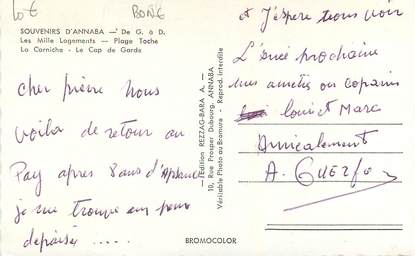 10 €
BONE
SOUVENIRS D'ANNABA — De G. à D.
Les Mille Logements — Plage Toche
La Corniche — Le Cap de Garde
cher pierre Nous
voila de retour au
Pay apres 8 ans d'Absence
je me trouve un peu
depaisée .....
L'Edition REZZAG-BARA A.
10, Rue Prosper Dubourg, ANNABA
Véritable Photo au Bromure - Reprod. interdite
BROMOCOLOR
et J'éspere vous voir
L'année prochaine
mes amities au copains
Louis et Marc
Amicalement
A.